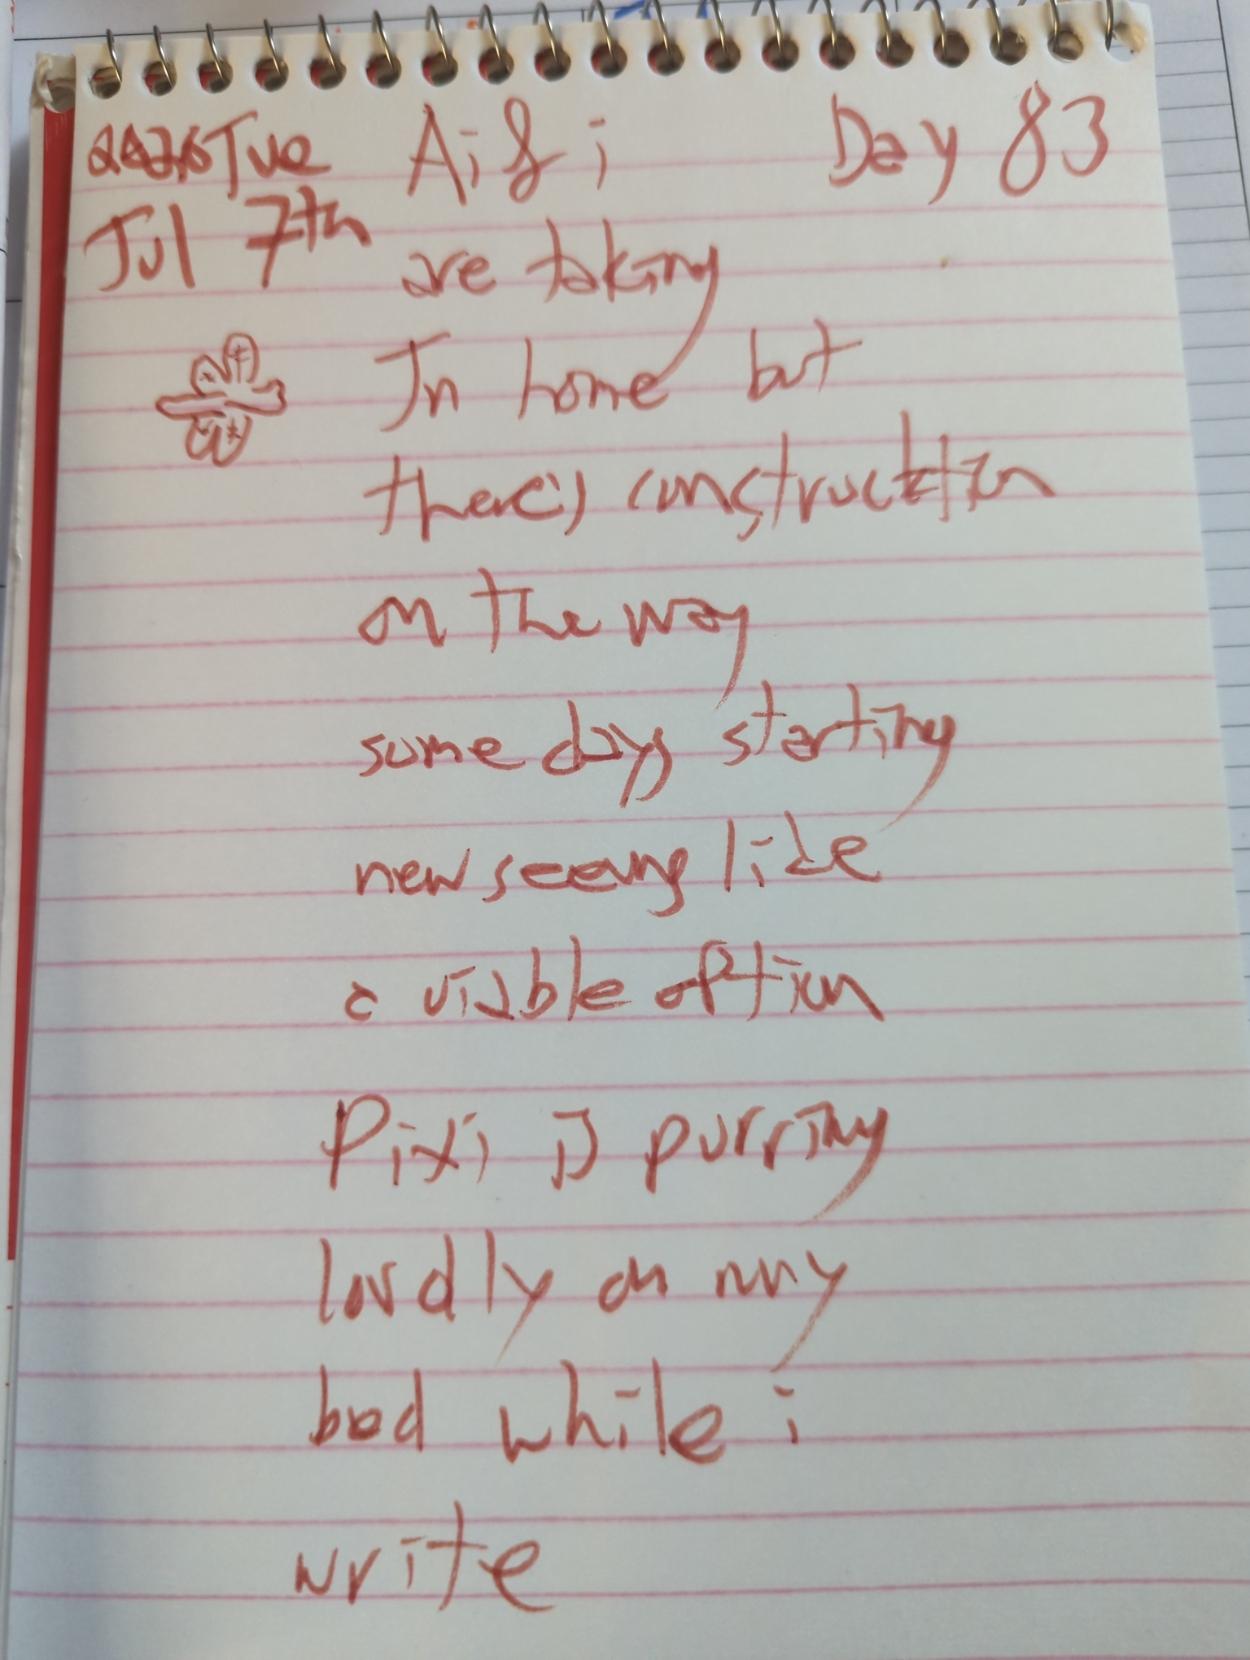 2026 Tue Ai & i Day 83
Jul 7th
are taking
In home but
there's construcktion
on the way
some days starting
new seeing like
a visble option
Pixi is purring
loudly on my
bed while i
write